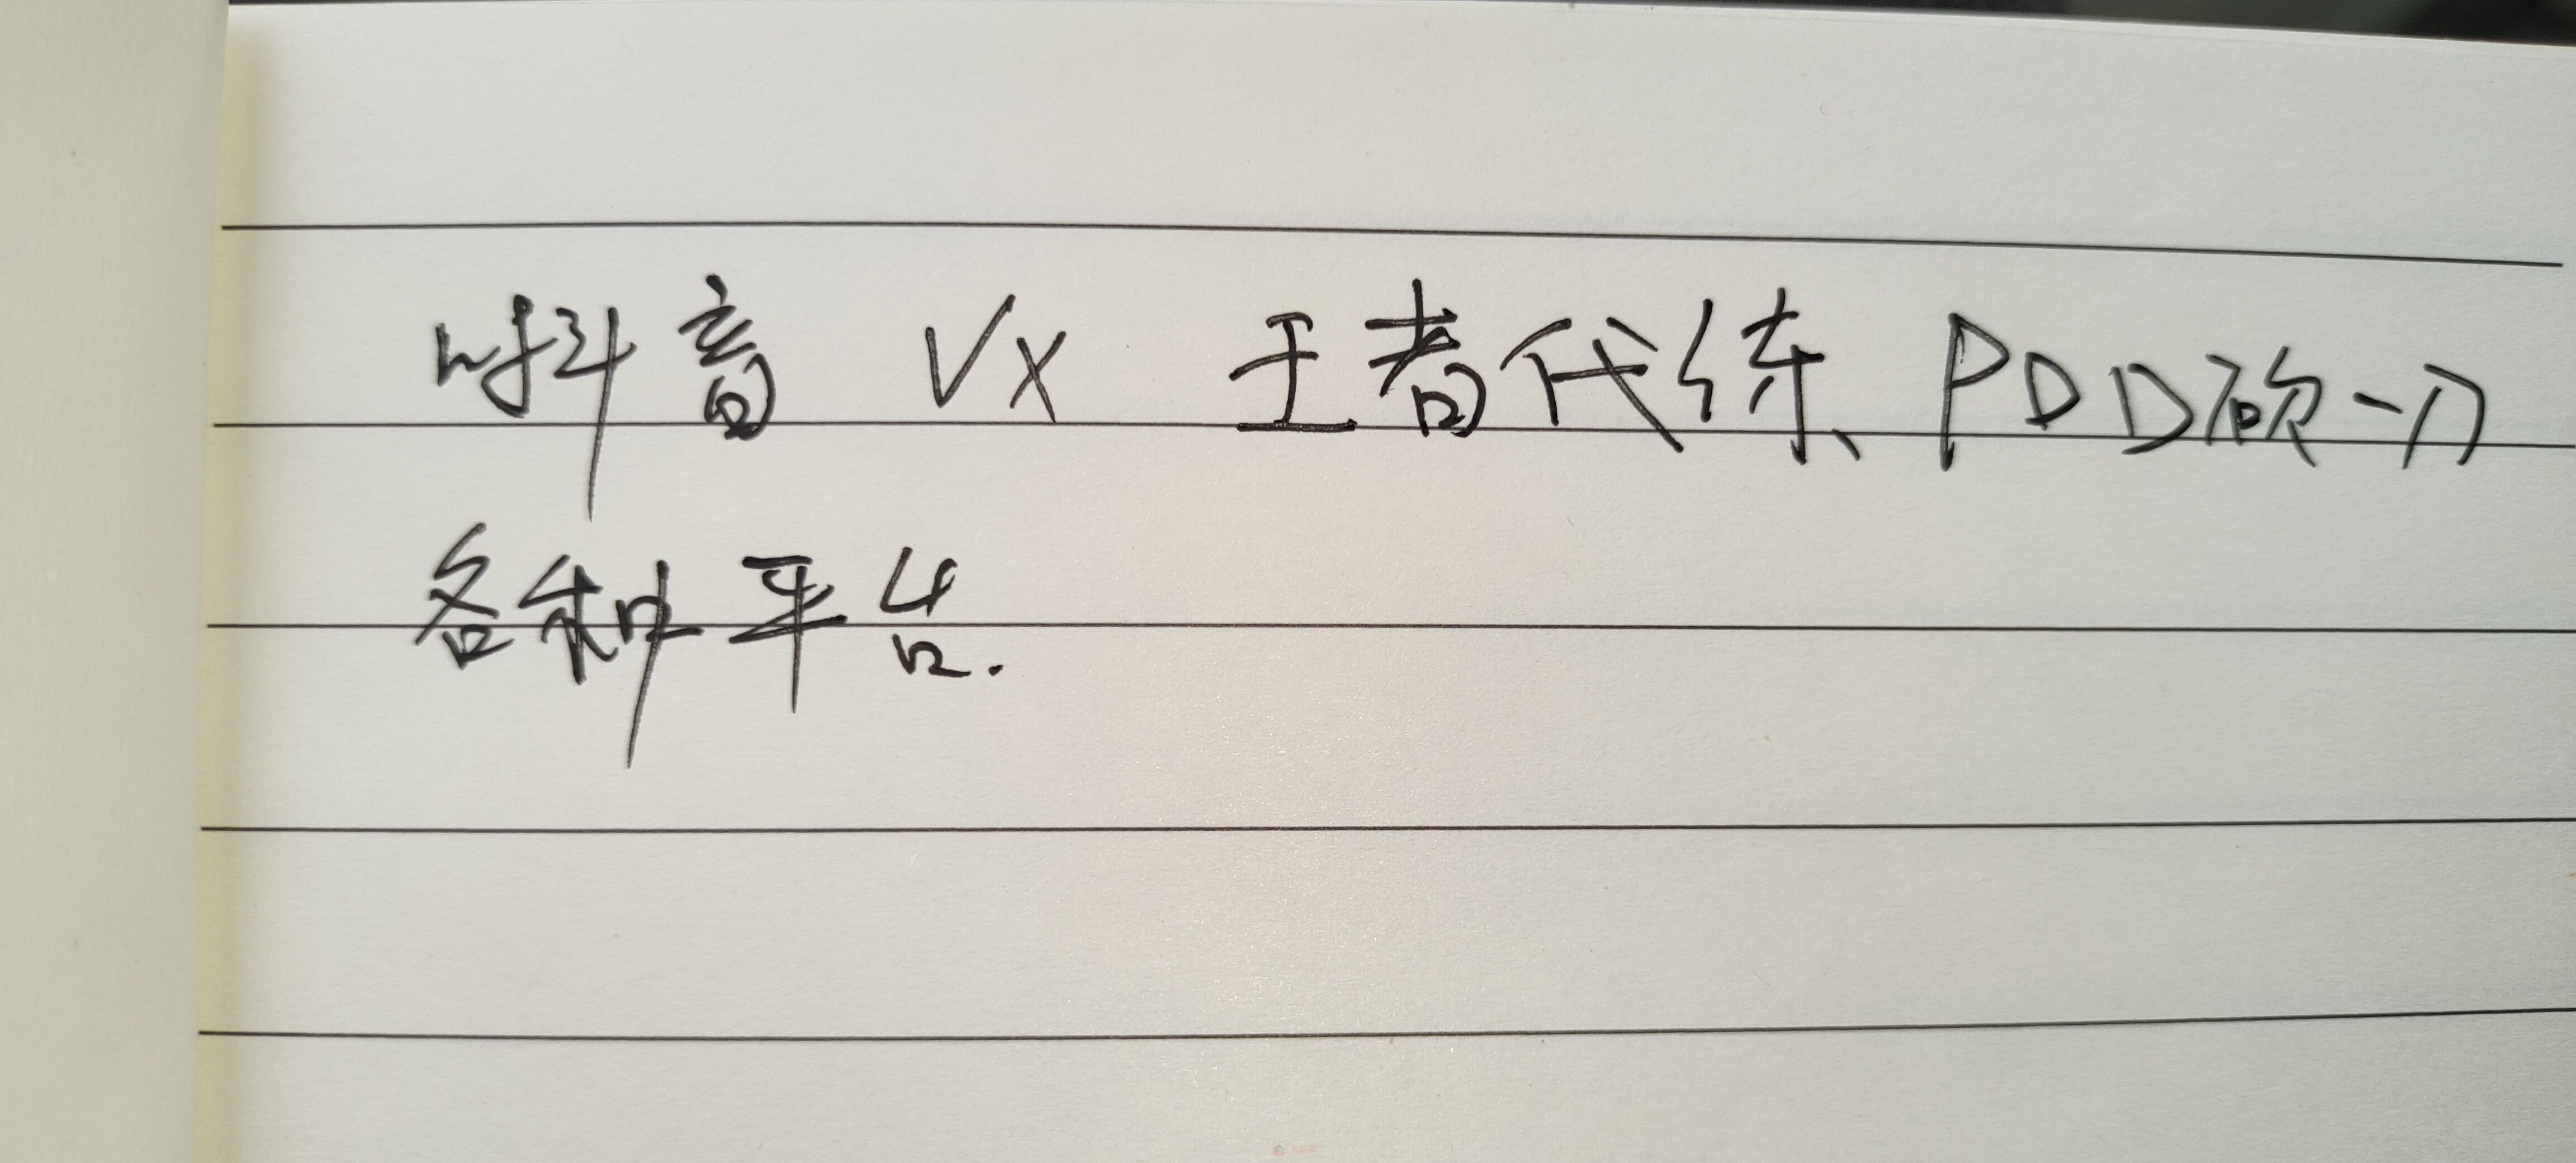 抖音 VX 王者代练、PDD砍一刀
各种平台.